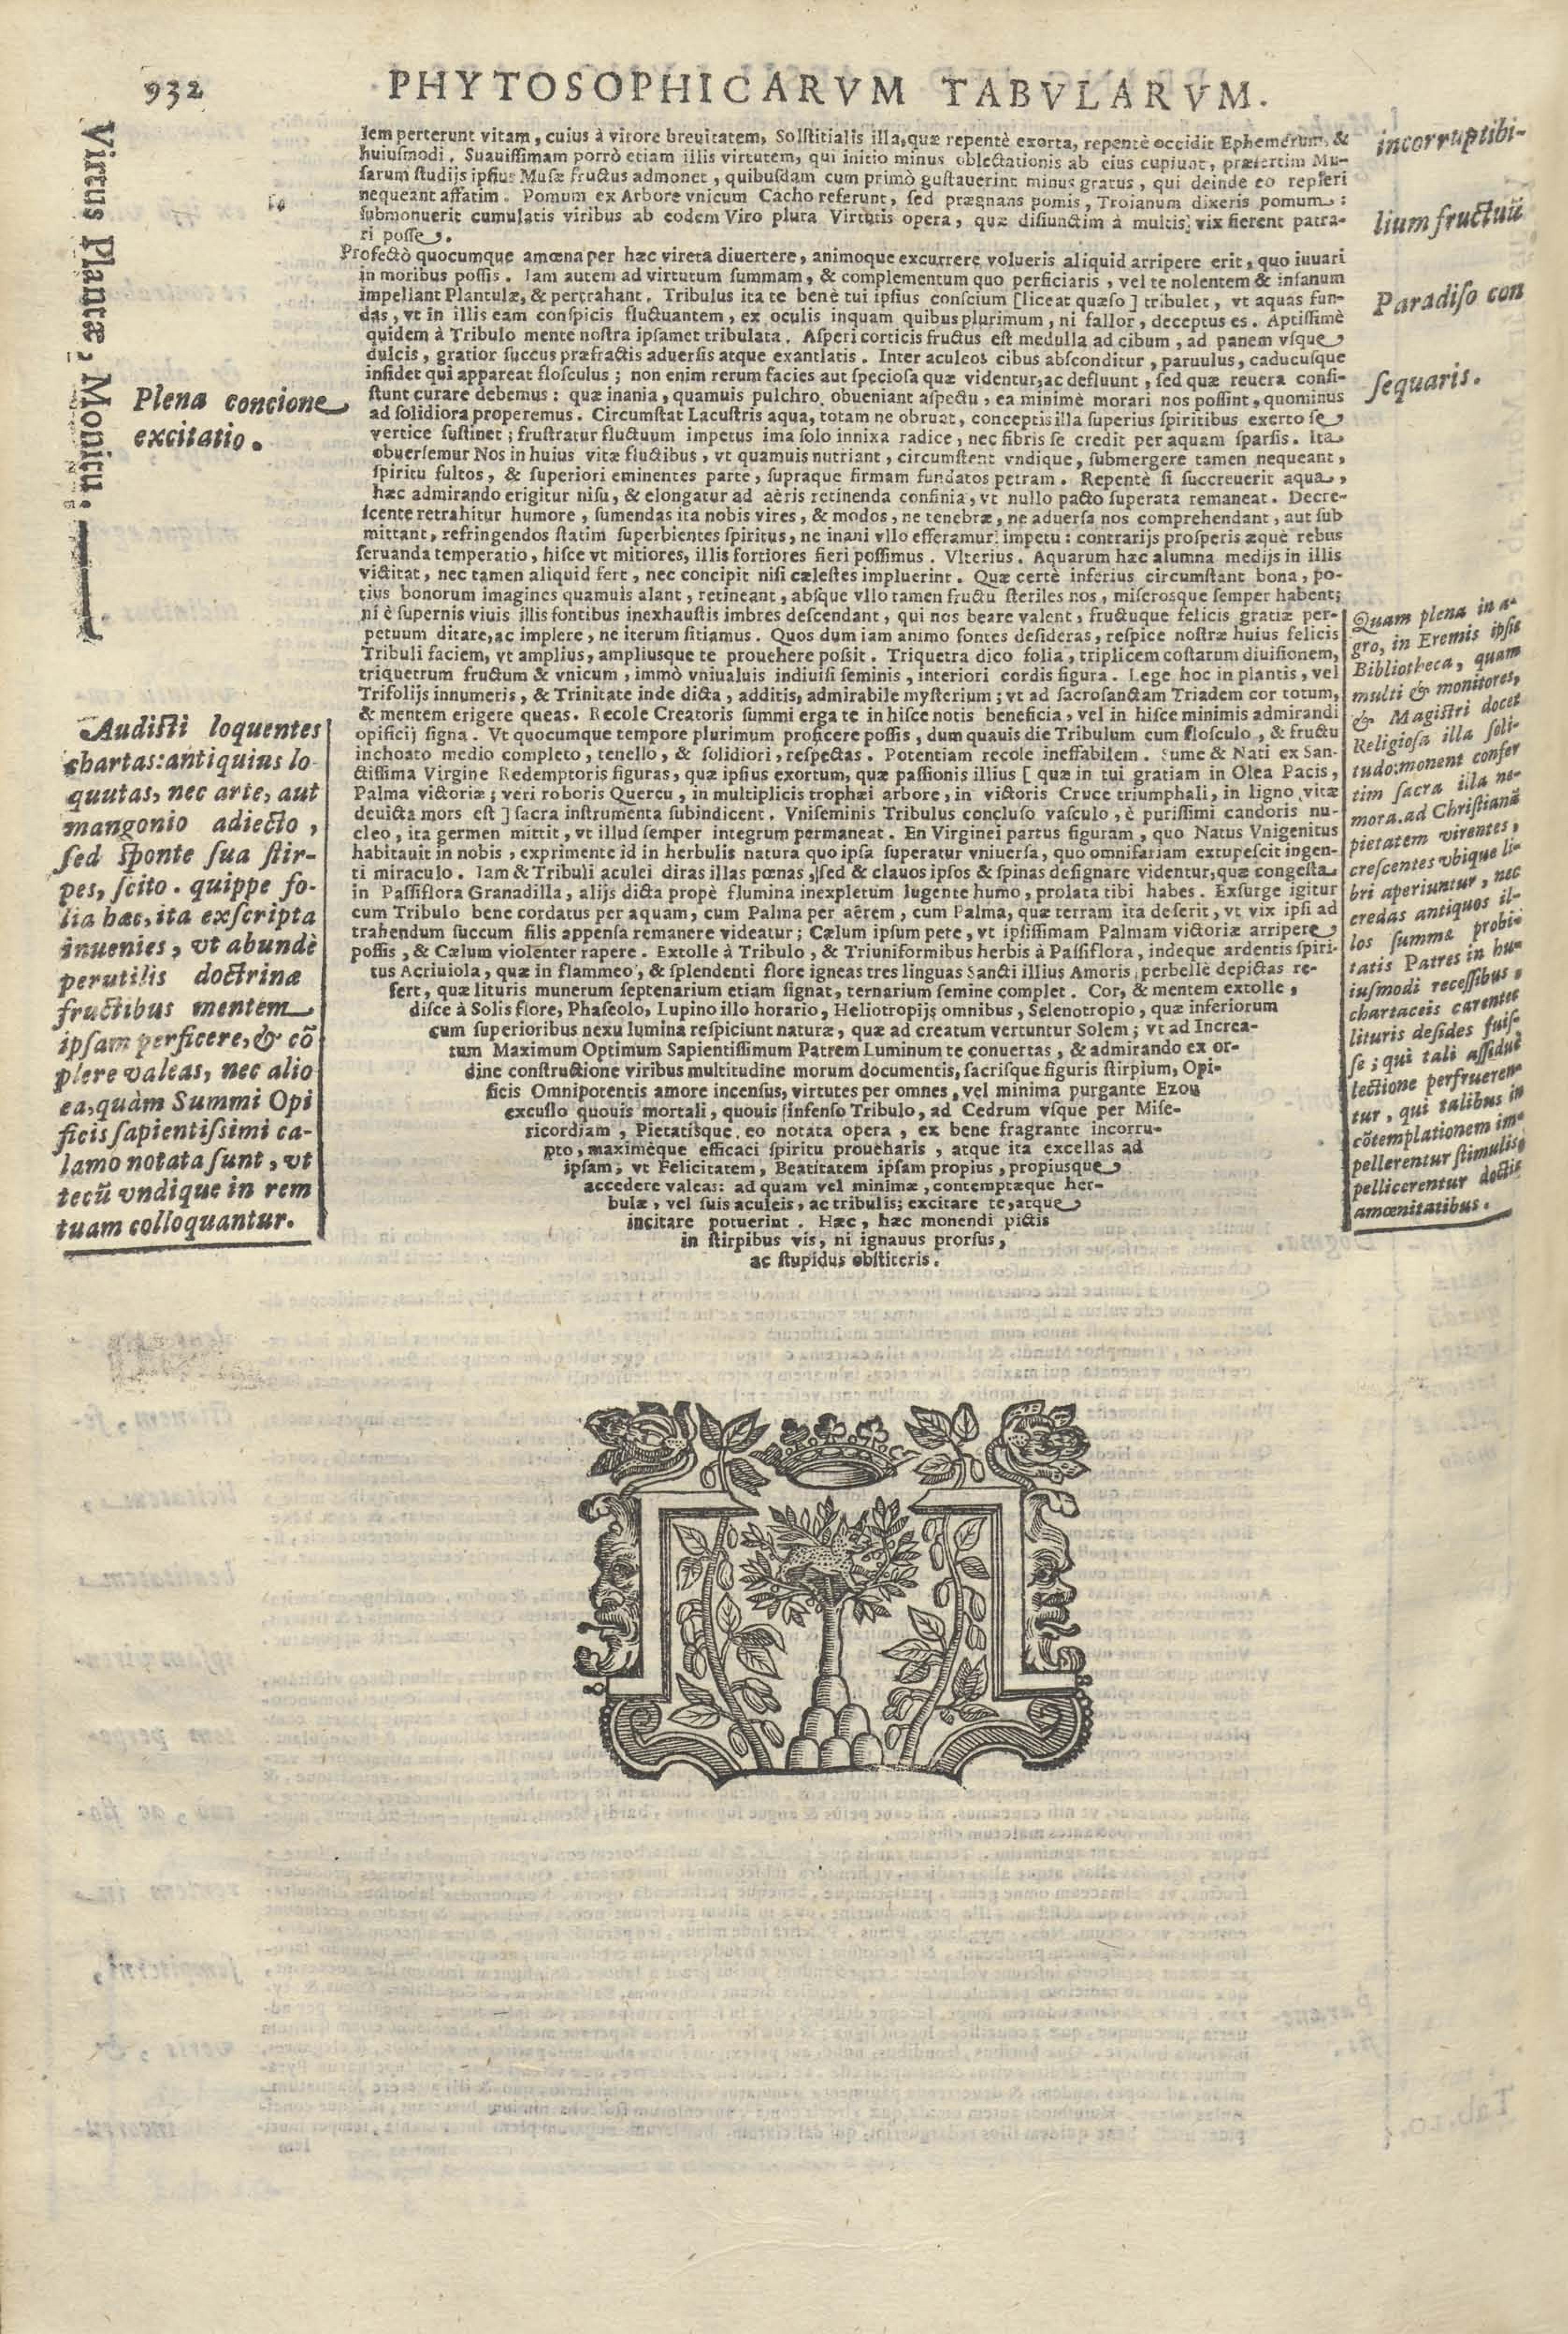 932
PHYTOSOPHICARVM TABVLARVM.
lem perterunt vitam, cuius à virore breuitatem, Solſtitialis illa, quæ repentè exorta, repentè occidit Ephemerum, &
huiuſmodi. Suauiſſimam porrò etiam illis virtutem, qui initio minus oblectationis ab eius cupiunt, præſertim Mu-
ſarum ſtudijs ipſius Muſæ fructus admonet, quibuſdam cum primò guſtauerint minus gratus, qui deinde eo repleri
nequeant affatim. Pomum ex Arbore vnicum Cacho referunt, ſed prægnans pomis, Troianum dixeris pomum:
ſubmonuerit cumulatis viribus ab eodem Viro plura Virtutis opera, quæ diſiunctim à multis vix fierent patra-
ri poſſe.
Profectò quocumque amœna per hæc vireta diuertere, animoque excurrere volueris aliquid arripere erit, quo iuuari
in moribus poſſis. Iam autem ad virtutum ſummam, & complementum quo perficiaris, vel te nolentem & inſanum
impellant Plantulæ, & pertrahant. Tribulus ita te benè tui ipſius conſcium [liceat quæſo] tribulet, vt aquas fun-
das, vt in illis eam conſpicis fluctuantem, ex oculis inquam quibus plurimum, ni fallor, deceptus es. Aptiſſimè
quidem à Tribulo mente noſtra ipſamet tribulata. Aſperi corticis fructus eſt medulla ad cibum, ad panem vſque
dulcis, gratior ſuccus præfractis aduerſis atque exantlatis. Inter aculeos cibus abſconditur, paruulus, caducuſque
inſidet qui appareat floſculus; non enim rerum facies aut ſpecioſa quæ videntur, ac defluunt, ſed quæ reuera conſi-
ſtunt curare debemus: quæ inania, quamuis pulchro obueniant aſpectu, ea minimè morari nos poſſint, quominus
ad ſolidiora properemus. Circumſtat Lacuſtris aqua, totam ne obruat, conceptis illa ſuperius ſpiritibus exerto ſe
vertice ſuſtinet; fruſtratur fluctuum impetus ima ſolo innixa radice, nec fibris ſe credit per aquam ſparſis. Ita
obuerſemur Nos in huius vitæ fluctibus, vt quamuis nutriant, circumſtent vndique, ſubmergere tamen nequeant,
ſpiritu fultos, & ſuperiori eminentes parte, ſupraque firmam fundatos petram. Repentè ſi ſuccreuerit aqua,
hæc admirando erigitur niſu, & elongatur ad aëris retinenda confinia, vt nullo pacto ſuperata remaneat. Decre-
ſcente retrahitur humore, ſumendas ita nobis vires, & modos, ne tenebræ, ne aduerſa nos comprehendant, aut ſub
mittant, refringendos ſtatim ſuperbientes ſpiritus, ne inani vllo efferamur impetu: contrarijs proſperis æquè rebus
ſeruanda temperatio, hiſce vt mitiores, illis fortiores fieri poſſimus. Vlterius. Aquarum hæc alumna medijs in illis
victitat, nec tamen aliquid fert, nec concipit niſi cæleſtes impluerint. Quæ certè inferius circumſtant bona, po-
tius bonorum imagines quamuis alant, retineant, abſque vllo tamen fructu ſteriles nos, miſerosque ſemper habent;
ni è ſupernis viuis illis fontibus inexhauſtis imbres deſcendant, qui nos beare valent, fructuque felicis gratiæ per-
petuum ditare, ac implere, ne iterum ſitiamus. Quos dum iam animo fontes deſideras, reſpice noſtræ huius felicis
Tribuli faciem, vt amplius, ampliusque te prouehere poſſit. Triquetra dico folia, triplicem coſtarum diuiſionem,
triquetrum fructum & vnicum, immò vniualuis indiuiſi ſeminis, interiori cordis figura. Lege hoc in plantis, vel
Trifolijs innumeris, & Trinitate inde dicta, additis, admirabile myſterium; vt ad ſacroſanctam Triadem cor totum,
& mentem erigere queas. Recole Creatoris ſummi erga te in hiſce notis beneficia, vel in hiſce minimis admirandi
opificij ſigna. Vt quocumque tempore plurimum proficere poſſis, dum quauis die Tribulum cum floſculo, & fructu
inchoato medio completo, tenello, & ſolidiori, reſpectas. Potentiam recole ineffabilem. Sume & Nati ex San-
ctiſſima Virgine Redemptoris figuras, quæ ipſius exortum, quæ paſſionis illius [ quæ in tui gratiam in Olea Pacis,
Palma victoriæ; veri roboris Quercu, in multiplicis trophæi arbore, in victoris Cruce triumphali, in ligno vitæ
deuicta mors eſt ] ſacra inſtrumenta ſubindicent. Vniſeminis Tribulus concluſo vaſculo, è puriſſimi candoris nu-
cleo, ita germen mittit, vt illud ſemper integrum permaneat. En Virginei partus figuram, quo Natus Vnigenitus
habitauit in nobis, exprimente id in herbulis natura quo ipſa ſuperatur vniuerſa, quo omnifariam extupeſcit ingen-
ti miraculo. Iam & Tribuli aculei diras illas pœnas, ſed & clauos ipſos & ſpinas deſignare videntur, quæ congeſta
in Paſſiflora Granadilla, alijs dicta propè flumina inexpletum lugente humo, prolata tibi habes. Exſurge igitur
cum Tribulo bene cordatus per aquam, cum Palma per aërem, cum Palma, quæ terram ita deſerit, vt vix ipſi ad
trahendum ſuccum filis appenſa remanere videatur; Cælum ipſum pete, vt ipſiſſimam Palmam victoriæ arripere
poſſis, & Cælum violenter rapere. Extolle à Tribulo, & Triuniformibus herbis à Paſſiflora, indeque ardentis ſpiri-
tus Acriuiola, quæ in flammeo, & ſplendenti flore igneas tres linguas Sancti illius Amoris perbellè depictas re-
fert, quæ lituris munerum ſeptenarium etiam ſignat, ternarium ſemine complet. Cor, & mentem extolle,
diſce à Solis flore, Phaſeolo, Lupino illo horario, Heliotropijs omnibus, Selenotropio, quæ inferiorum
cum ſuperioribus nexu lumina reſpiciunt naturæ, quæ ad creatum vertuntur Solem; vt ad Increa-
tum Maximum Optimum Sapientiſſimum Patrem Luminum te conuertas, & admirando ex or-
dine conſtructione viribus multitudine morum documentis, ſacriſque figuris ſtirpium, Opi-
ficis Omnipotentis amore incenſus, virtutes per omnes, vel minima purgante Ezou
excuſſo quouis mortali, quouis infenſo Tribulo, ad Cedrum vſque per Miſe-
ricordiam, Pietatiſque eo notata opera, ex bene fragrante incorru-
pto, maximèque efficaci ſpiritu proueharis, atque ita excellas ad
ipſam; vt Felicitatem, Beatitatem ipſam propius, propiusque
accedere valeas: ad quam vel minimæ, contemptæque her-
bulæ, vel ſuis aculeis, ac tribulis; excitare te, atque
incitare potuerint. Hæc, hæc monendi pictis
in ſtirpibus vis, ni ignauus prorſus,
ac ſtupidus obſtiteris.
Virtus Plantæ, Monitu.
Plena concione
excitatio.
Audiſti loquentes
chartas: antiquius lo
quutas, nec arte, aut
mangonio adiecto,
ſed ſponte ſua ſtir-
pes, ſcito. quippe fo-
lia hæc, ita exſcripta
inuenies, vt abundè
perutilis doctrinæ
fructibus mentem
ipſam perficere, & cõ
plere valeas, nec alio
ea, quàm Summi Opi
ficis ſapientiſsimi ca-
lamo notata ſunt, vt
tecũ vndique in rem
tuam colloquantur.
incorruptibi-
lium fructuũ
Paradiſo con
ſequaris.
Quam plena in a-
gro, in Eremis ipſis
Bibliotheca, quam
multi & monitores,
& Magiſtri docet
Religioſa illa ſoli-
tudo: monent confer
tim ſacra illa ne-
mora. ad Chriſtianã
pietatem virentes,
creſcentes vbique li-
bri aperiuntur, nec
credas antiquos il-
los ſummæ probi-
tatis Patres in hu-
iuſmodi receſſibus,
chartaceis carentes
lituris deſides fuiſ-
ſe; qui tali aſſiduè
lectione perfrueren-
tur, qui talibus in
cõtemplationem im-
pellerentur ſtimulis,
pellicerentur doctis
amœnitatibus.